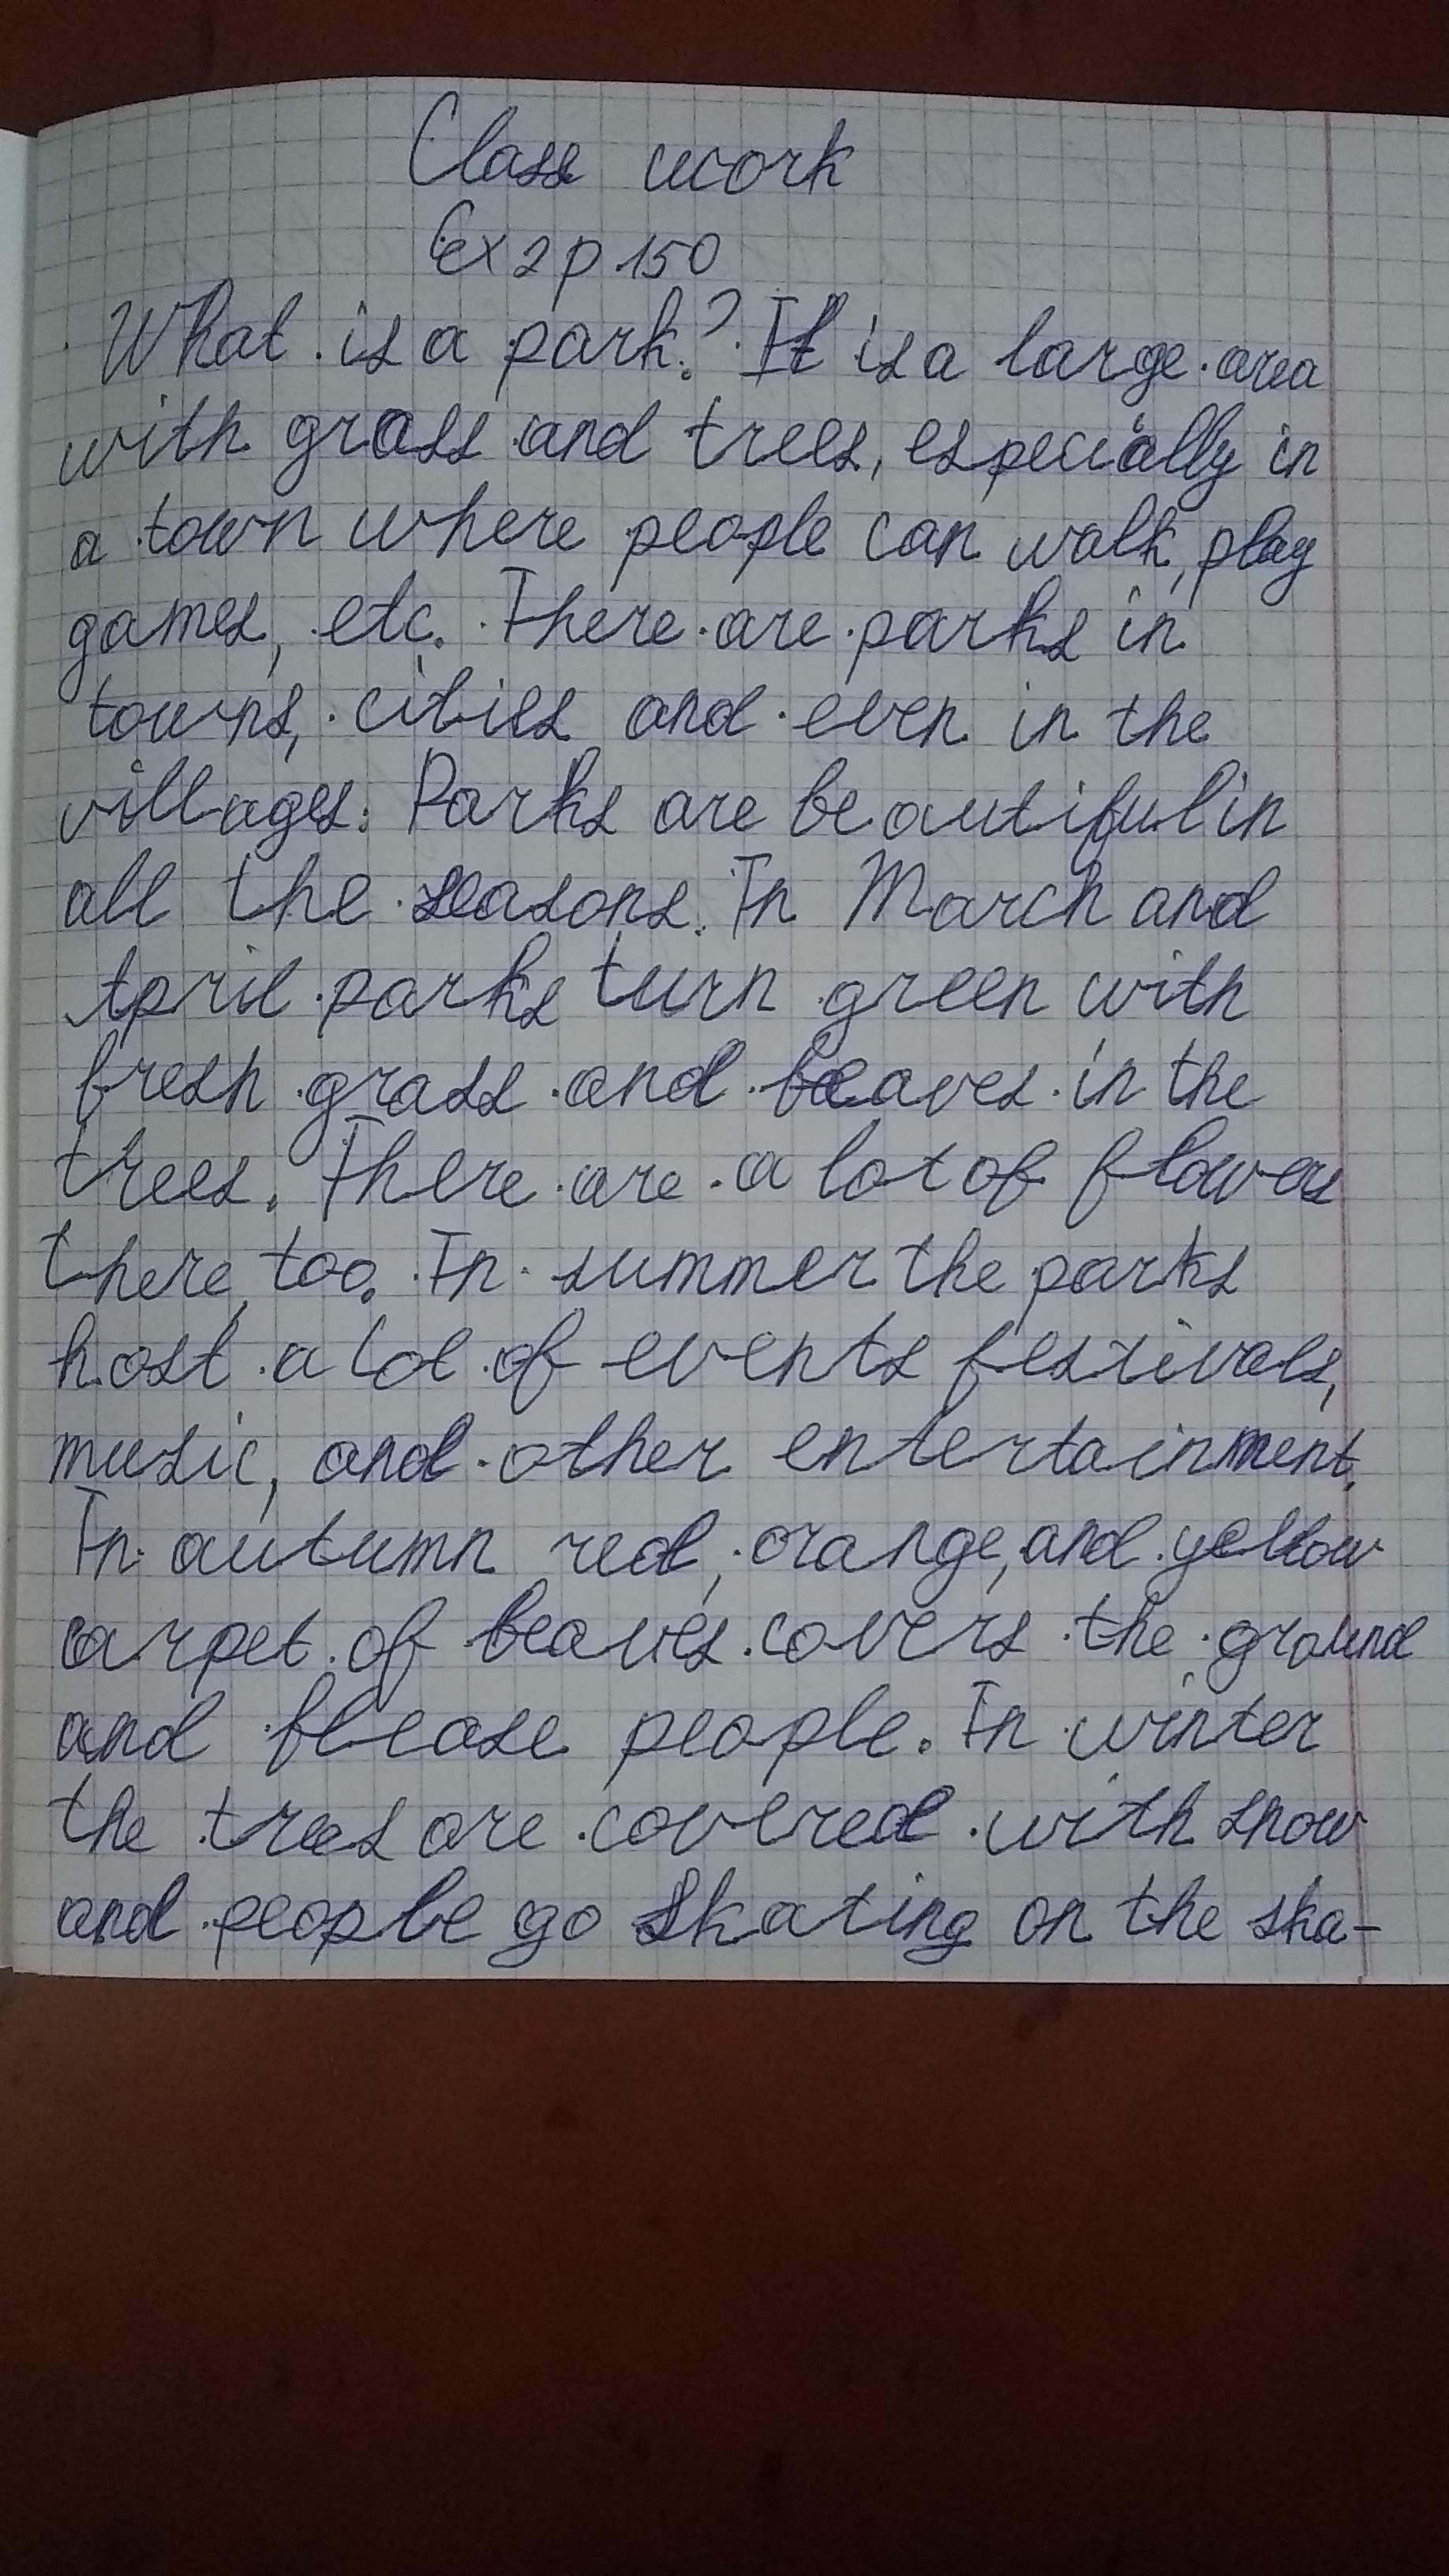 Class work
Ex 2 p 150
What is a park? It is a large area
with grass and trees, especially in
a town where people can walk, play
games, etc. There are parks in
towns, cities and even in the
villages. Parks are beautiful in
all the seasons. In March and
April parks turn green with
fresh grass and leaves in the
trees. There are a lot of flowers
there, too. In summer the parks
host a lot of events festivals,
music, and other entertainment.
In autumn red, orange, and yellow
carpet of leaves covers the ground
and please people. In winter
the trees are covered with snow
and people go skating on the ska-